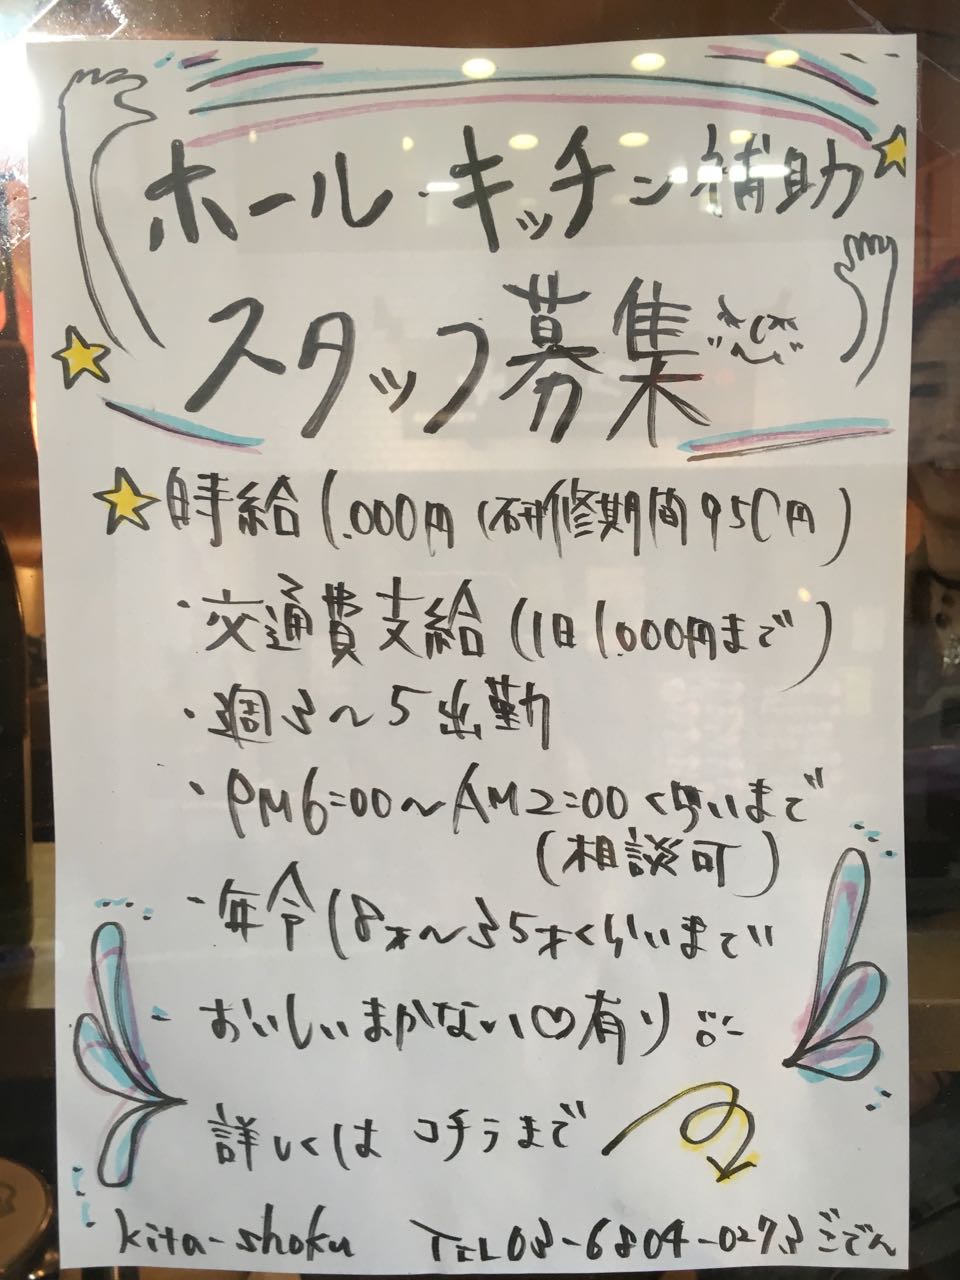 ホール・キッチン補助
スタッフ募集
時給1.000円(研修期間950円)
・交通費支給(1日1.000円まで)
・週3〜5出勤
・PM6:00〜AM2:00くらいまで
(相談可)
・年令18才〜35才くらいまで
おいしいまかない♡有り
詳しくはコチラまで
kita-shoku TEL03-6804-0273